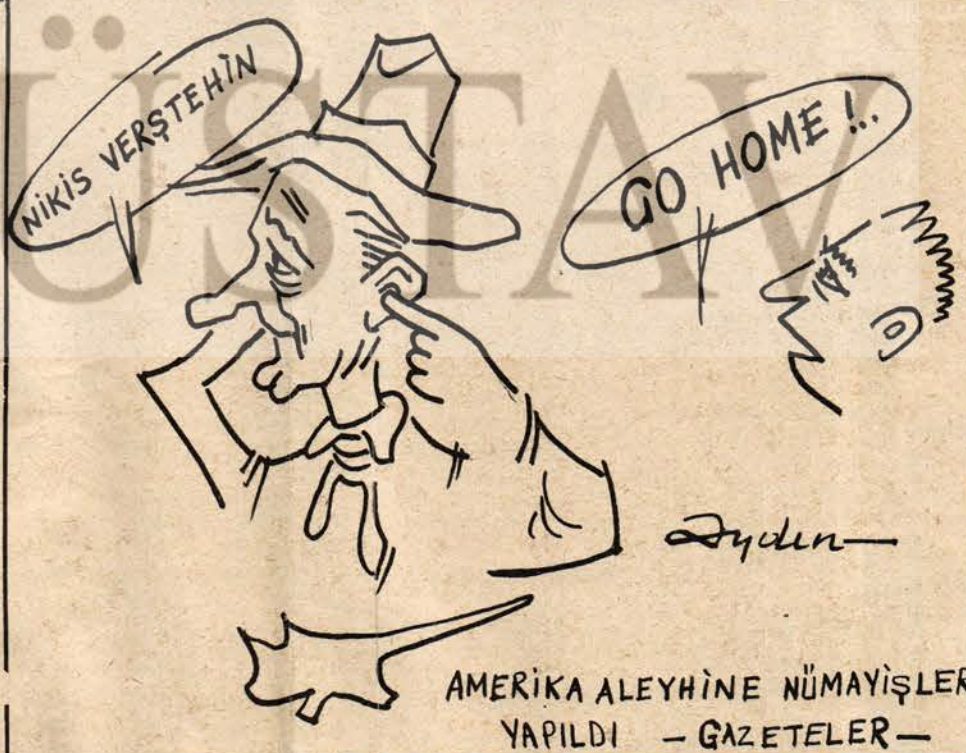 ÜSTAV
NİKİS VERŞTEHİN
GO HOME !..
Aydın
AMERİKA ALEYHİNE NÜMAYİŞLER
YAPILDI — GAZETELER —